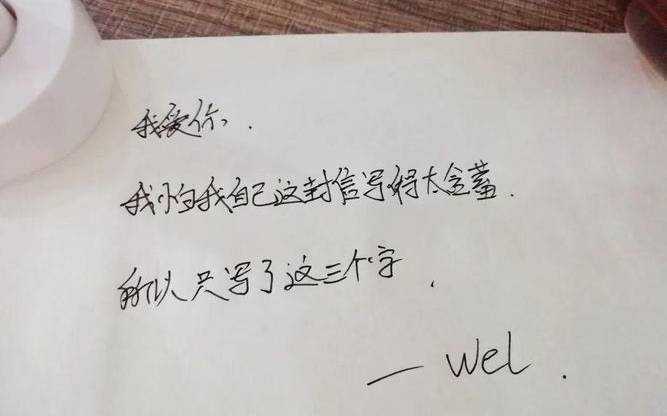 我爱你.
我怕我自己这封信写得太含蓄.
所以只写了这三个字.
—Wel.